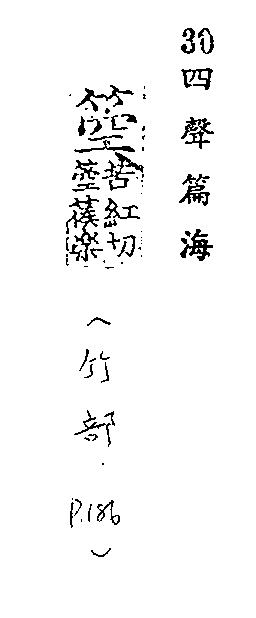 30
四聲篇海
箜
苦紅切
箜篌樂
(竹部.P.186)